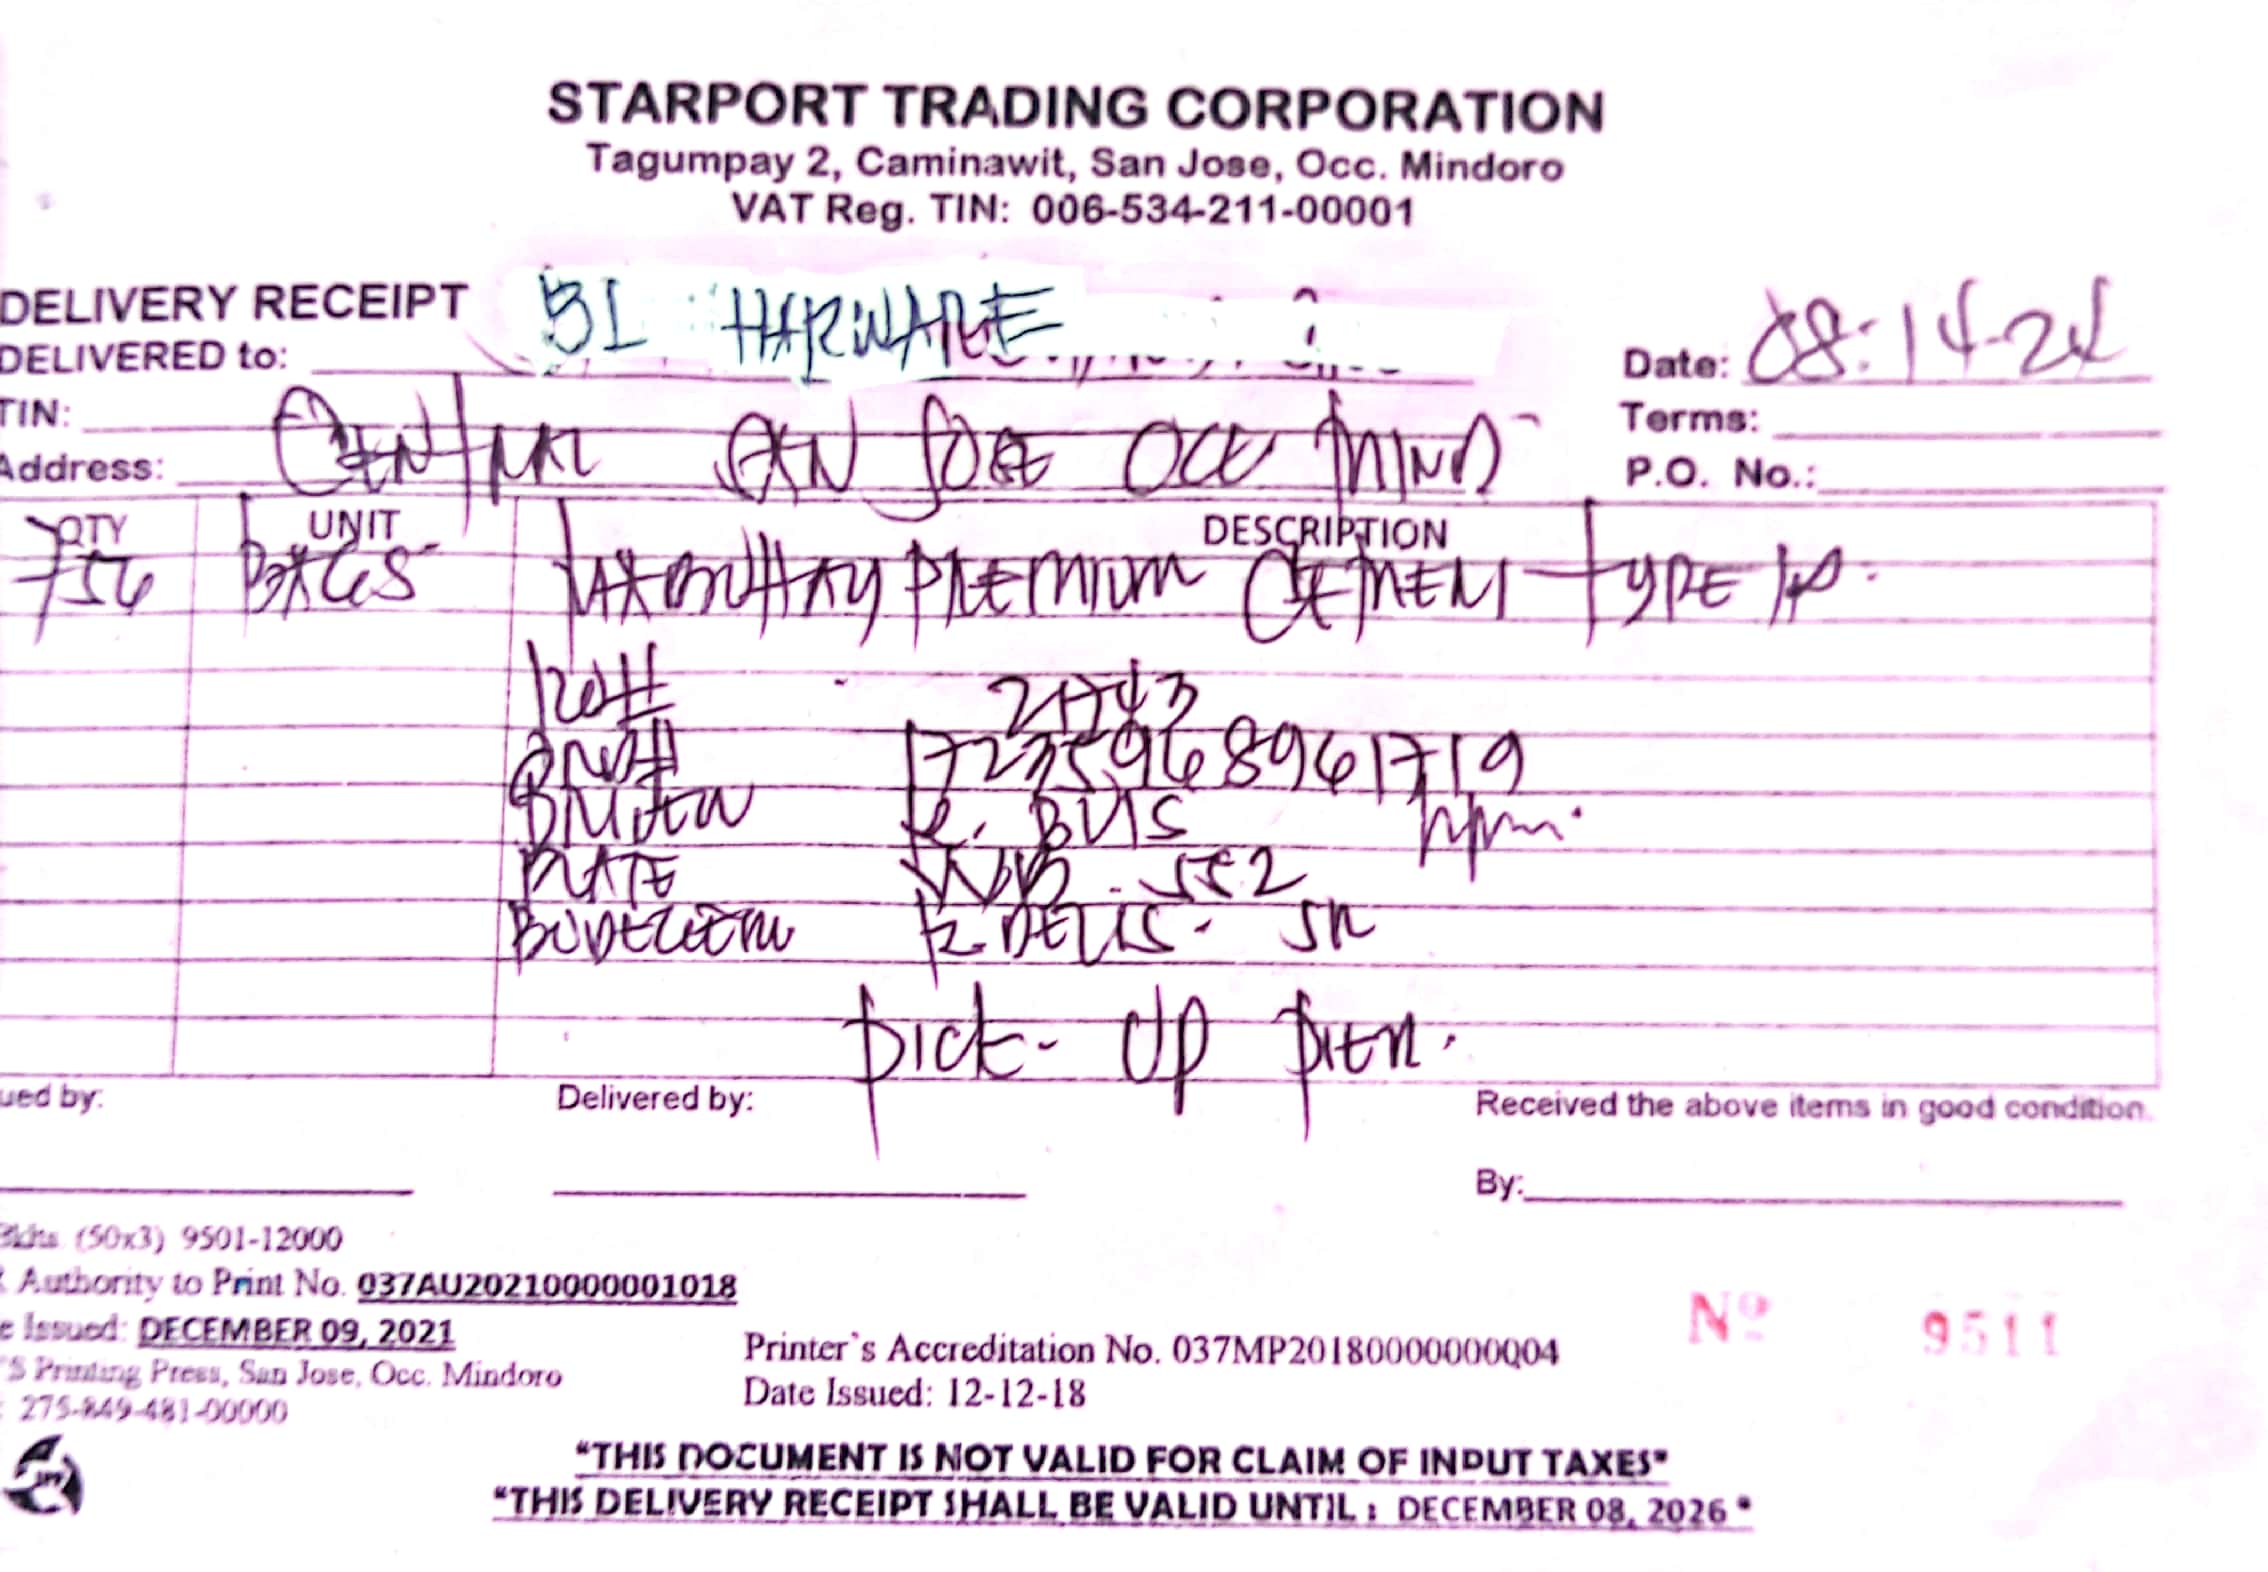 STARPORT TRADING CORPORATION
Tagumpay 2, Caminawit, San Jose, Occ. Mindoro
VAT Reg. TIN: 006-534-211-00001
DELIVERY RECEIPT
DELIVERED to: BI HARWARE
Date: 08-14-24
TIN:
Terms:
Address: CENTRAL SAN JOSE OCC MIND
P.O. No.:
QTY UNIT DESCRIPTION
756 BAGS PREMIUM CEMENT TYPE 1P.
21743
17235968961719
PLATE 552
PICK-UP PIER.
ued by:
Delivered by:
Received the above items in good condition.
By:
(50x3) 9501-12000
Authority to Print No. 037AU20210000001018
e Issued: DECEMBER 09, 2021
'S Printing Press, San Jose, Occ. Mindoro
275-849-481-00000
Printer's Accreditation No. 037MP20180000000004
Date Issued: 12-12-18
Nº 9511
"THIS DOCUMENT IS NOT VALID FOR CLAIM OF INPUT TAXES"
"THIS DELIVERY RECEIPT SHALL BE VALID UNTIL : DECEMBER 08, 2026"